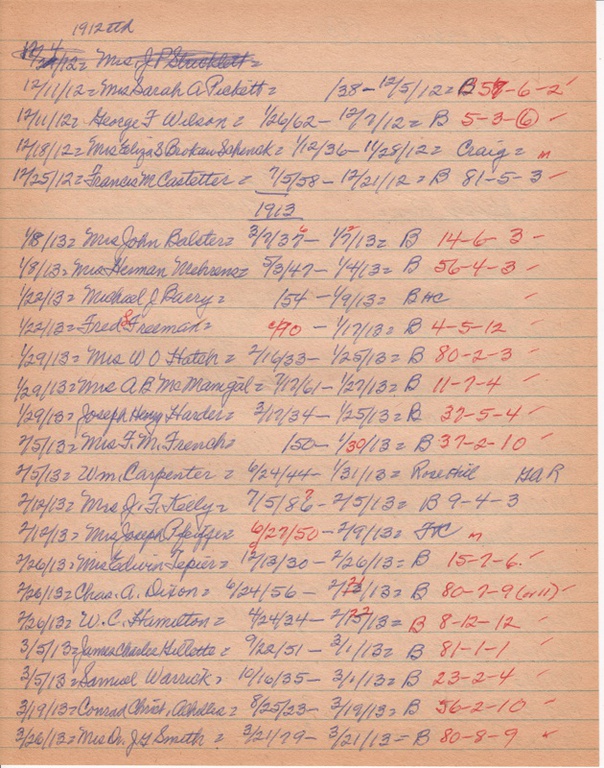 1912
12/11/12= Mrs Sarah A Pickett= /38 - 12/5/12= B 57-6-2
12/11/12= George F Wilson= 1/26/62 - 12/7/12= B 5-3-6
12/18/12= Mrs Eliza S Brokaw 1/12/36 - 11/28/12= Craig= m
12/25/12= Francis M Castetter= 7/5/58 - 12/21/12= B 81-5-3
1913
1/8/13= Mrs John Balster= 3/7/37 - 1/7/13= B 14-6 3
1/8/13= Mrs Herman Mehrens= 5/3/47 - 1/4/13= B 56-4-3
1/22/13= Michael J Barry= /54 - 1/9/13= B HC
1/22/13= Fred Freeman= /90 - 1/17/13= B 4-5-12
1/29/13= Mrs W O Hatch= 2/16/33 - 1/25/13= B 80-2-3
1/29/13= Mrs A B McManigal= 7/17/61 - 1/27/13= B 11-7-4
1/29/13= Joseph Henry Harder= 3/17/34 - 1/25/13= B 37-5-4
2/5/13= Mrs F. M. French= /50 - 1/30/13= B 37-2-10
2/5/13= Wm. Carpenter= 6/24/44 - 1/31/13= Rose Hill GAR
2/12/13= Mrs J. F. Kelly= 7/5/86? - 2/5/13= B 9-4-3
2/12/13= Mrs Joseph Pfeiffer= 6/27/50 - 2/9/13= m
2/26/13= Mrs Edwin Tapier= 12/13/30 - 2/26/13= B 15-7-6
2/26/13= Chas. A. Dixon= 6/24/56 - /13= B 80-7-9 (or 11)
2/26/13= W. C. Hamilton= 4/24/34 - /13= B 8-12-12
3/5/13= James Charles Gillette= 9/22/51 - 3/1/13= B 81-1-1
3/5/13= Samuel Warrick= 10/16/35 - 3/1/13= B 23-2-4
3/19/13= Conrad Christ. = 8/25/23 - 3/19/13= B 56-2-10
3/26/13= Mrs Dr. J G Smith= 3/21/79 - 3/21/13= B 80-8-9